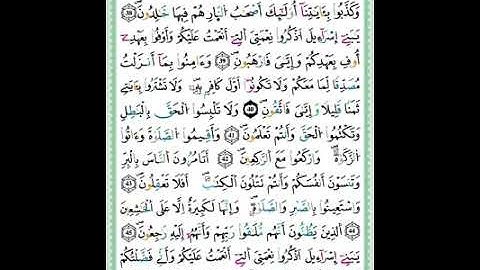 وَكَذَّبُوا۟ بِـَٔايَٰتِنَآ أُو۟لَٰٓئِكَ أَصْحَٰبُ ٱلنَّارِ هُمْ فِيهَا خَٰلِدُونَ ۝٣٨
يَٰبَنِىٓ إِسْرَآءِيلَ ٱذْكُرُوا۟ نِعْمَتِىَ ٱلَّتِىٓ أَنْعَمْتُ عَلَيْكُمْ وَأَوْفُوا۟ بِعَهْدِىٓ
أُوفِ بِعَهْدِكُمْ وَإِيَّٰىَ فَٱرْهَبُونِ ۝٣٩ وَءَامِنُوا۟ بِمَآ أَنزَلْتُ
مُصَدِّقًا لِّمَا مَعَكُمْ وَلَا تَكُونُوٓا۟ أَوَّلَ كَافِرٍۭ بِهِۦ وَلَا تَشْتَرُوا۟ بِـَٔايَٰتِى
ثَمَنًا قَلِيلًا وَإِيَّٰىَ فَٱتَّقُونِ ۝٤٠ وَلَا تَلْبِسُوا۟ ٱلْحَقَّ بِٱلْبَٰطِلِ
وَتَكْتُمُوا۟ ٱلْحَقَّ وَأَنتُمْ تَعْلَمُونَ ۝٤١ وَأَقِيمُوا۟ ٱلصَّلَوٰةَ وَءَاتُوا۟
ٱلزَّكَوٰةَ وَٱرْكَعُوا۟ مَعَ ٱلرَّٰكِعِينَ ۝٤٢ أَتَأْمُرُونَ ٱلنَّاسَ بِٱلْبِرِّ
وَتَنسَوْنَ أَنفُسَكُمْ وَأَنتُمْ تَتْلُونَ ٱلْكِتَٰبَ أَفَلَا تَعْقِلُونَ ۝٤٣
وَٱسْتَعِينُوا۟ بِٱلصَّبْرِ وَٱلصَّلَوٰةِ وَإِنَّهَا لَكَبِيرَةٌ إِلَّا عَلَى ٱلْخَٰشِعِينَ
۝٤٤ ٱلَّذِينَ يَظُنُّونَ أَنَّهُم مُّلَٰقُوا۟ رَبِّهِمْ وَأَنَّهُمْ إِلَيْهِ رَٰجِعُونَ ۝٤٥
يَٰبَنِىٓ إِسْرَآءِيلَ ٱذْكُرُوا۟ نِعْمَتِىَ ٱلَّتِىٓ أَنْعَمْتُ عَلَيْكُمْ وَأَنِّى فَضَّلْتُكُمْ